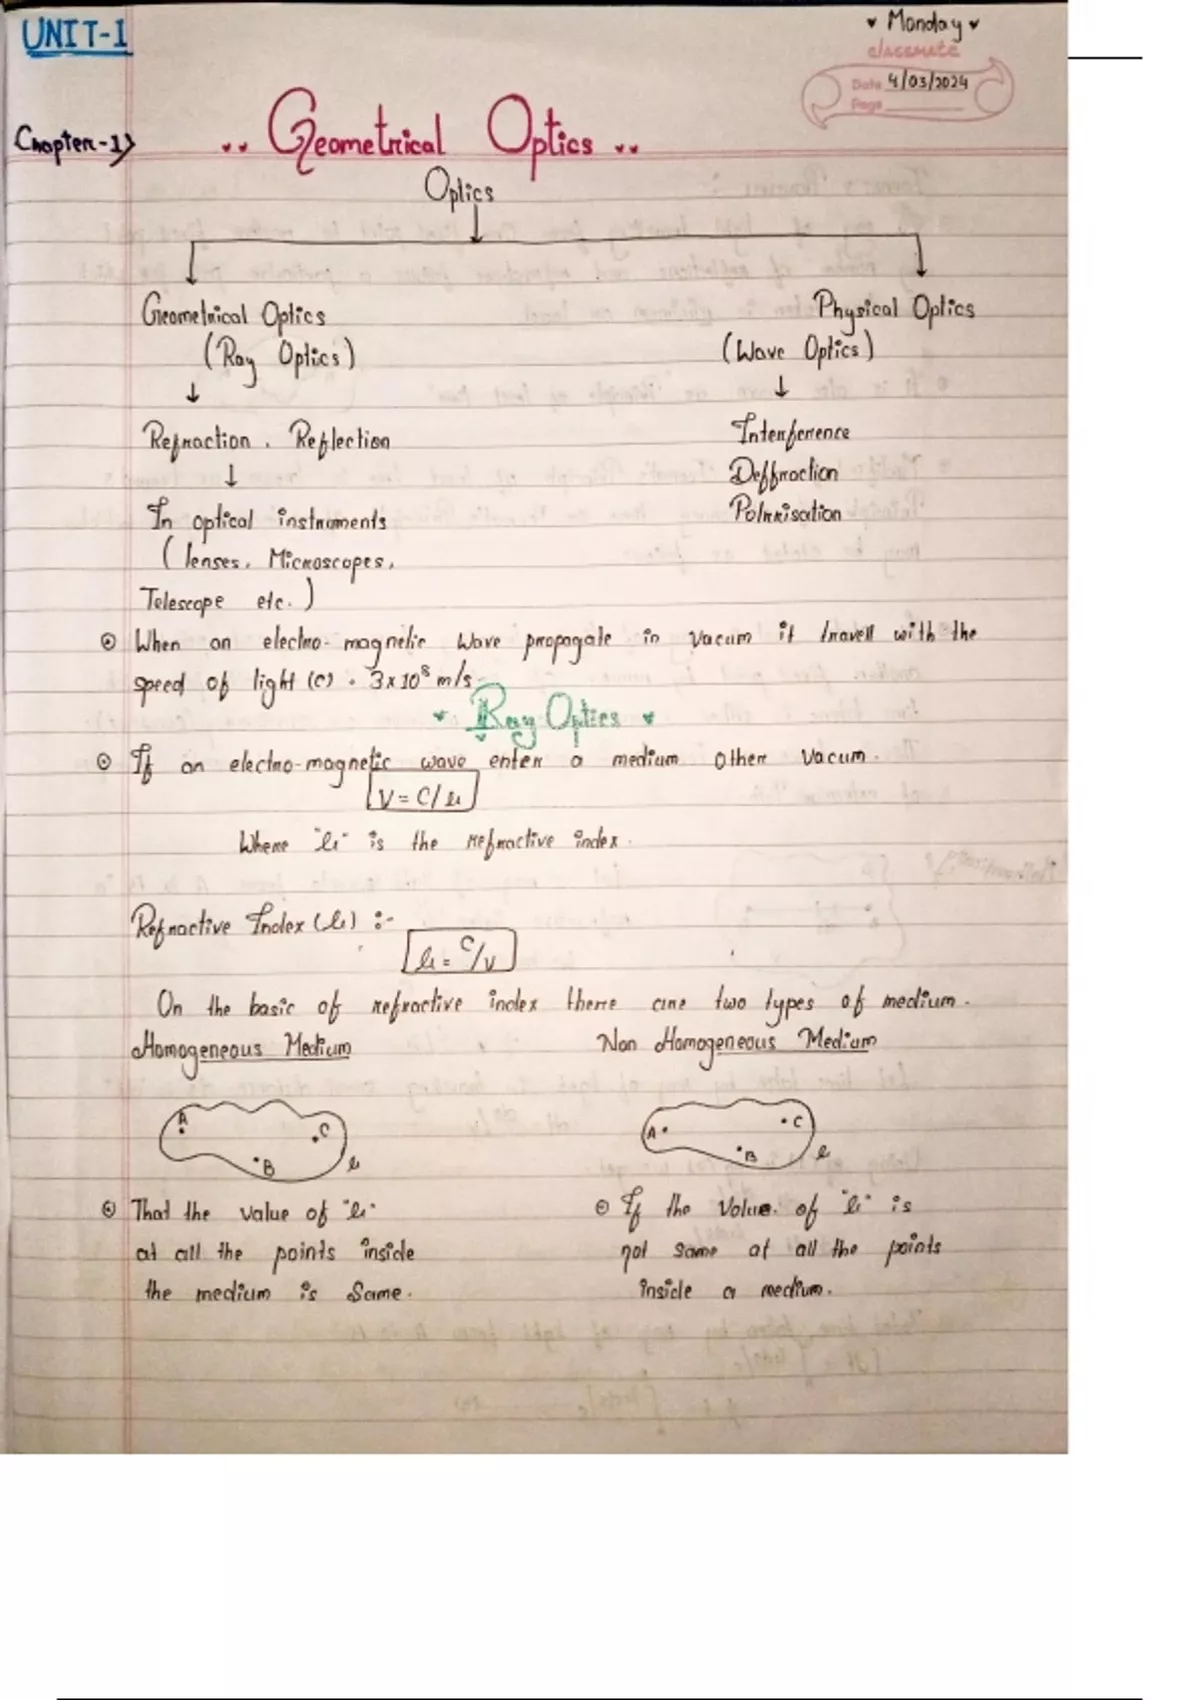 UNIT-1
Monday
classmate
Date 4/03/2024
Page
Chapter-1
Geometrical Optics
Optics
Geometrical Optics
Physical Optics
(Ray Optics)
(Wave Optics)
Refraction, Reflection
Interference
Deffraction
In optical instruments
Polarisation
(lenses, Microscopes,
Telescope etc.)
When an electro-magnetic wave propagate in vacum it travell with the
speed of light (c) = 3x10⁸ m/s
Ray Optics
If an electro-magnetic wave enter a medium other vacum.
V = C/μ
Where "μ" is the refractive index.
Refractive Index (μ) :-
μ = C/V
On the basic of refractive index there are two types of medium.
Homogeneous Medium
Non Homogeneous Medium
A
C
B
μ
A
C
B
μ
That the value of "μ"
at all the points inside
the medium is Same.
If the Value of "μ" is
not same at all the points
inside a medium.